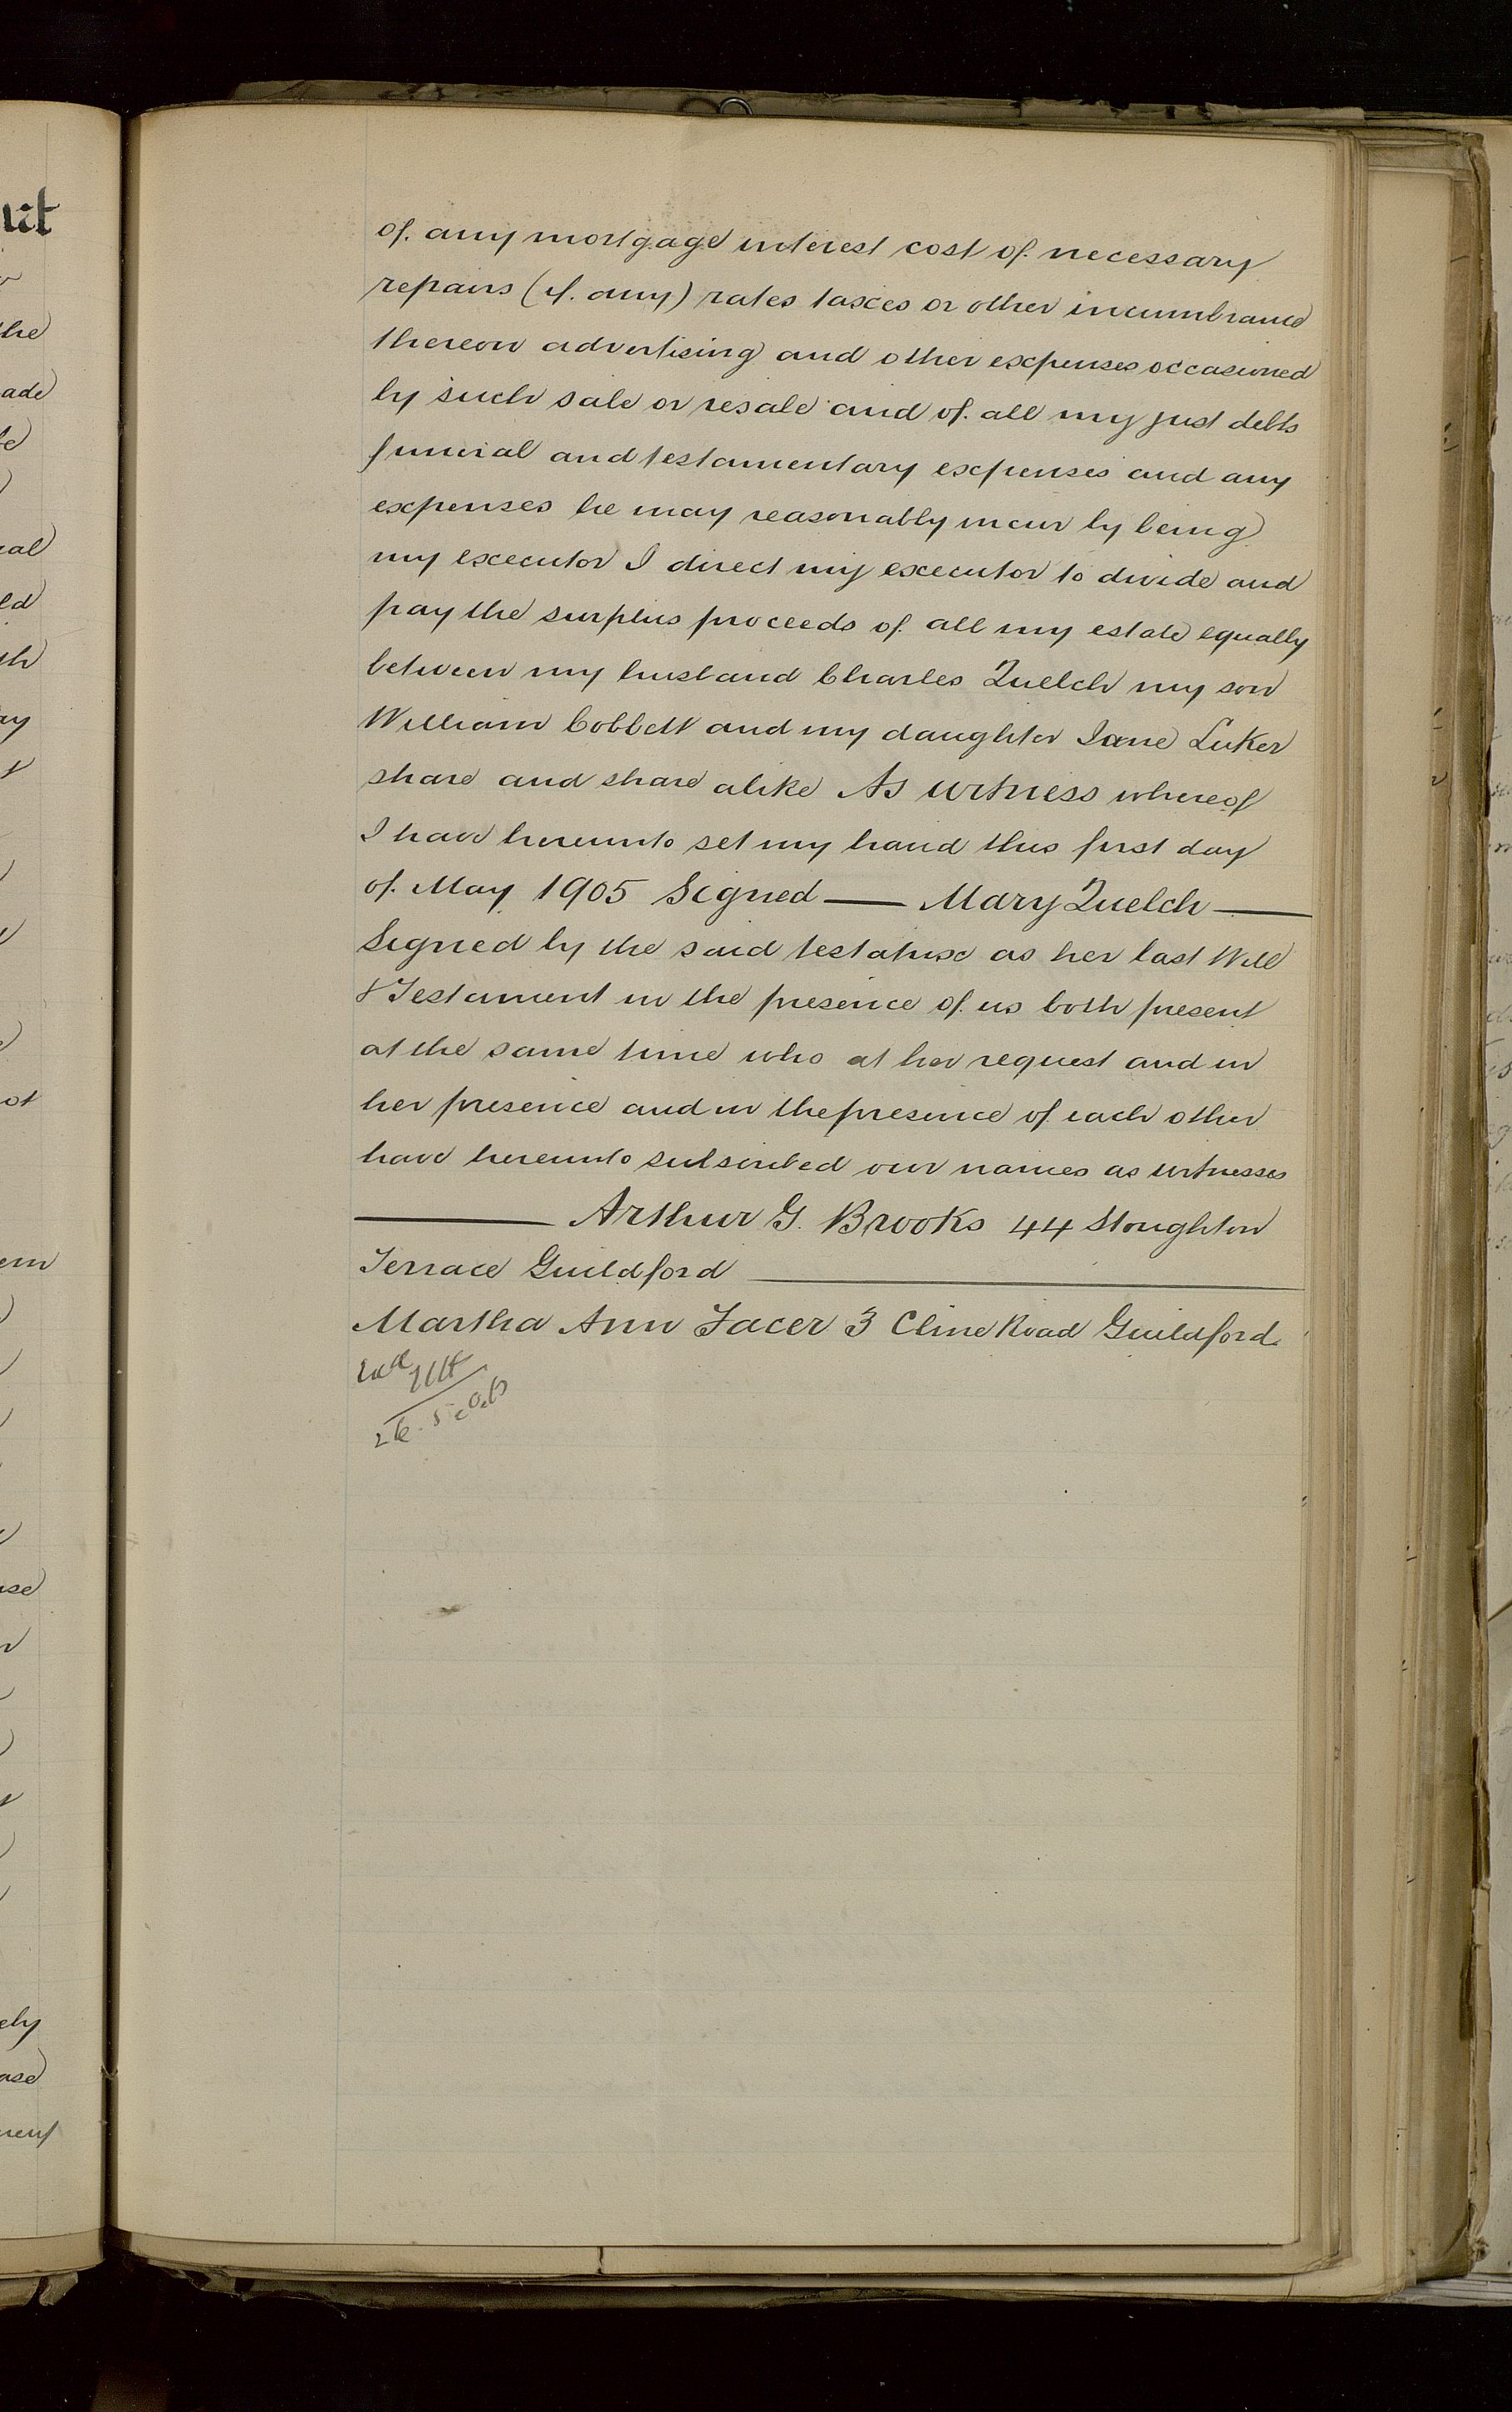 of any mortgage interest cost of necessary
repairs (if any) rates taxes or other incumbrance
thereon advertising and other expenses occasioned
by such sale or resale and of all my just debts
funeral and testamentary expenses and any
expenses he may reasonably incur by being
my executor I direct my executor to divide and
pay the surplus proceeds of all my estate equally
between my husband Charles Quelch my son
William Cobbett and my daughter Jane Luker
share and share alike As witness whereof
I have hereunto set my hand this first day
of May 1905 Signed — Mary Quelch —
Signed by the said testatrix as her last Will
& Testament in the presence of us both present
at the same time who at her request and in
her presence and in the presence of each other
have hereunto subscribed our names as witnesses
— Arthur G. Brooks 44 Stoughton
Terrace Guildford —
Martha Ann Facer 3 Cline Road Guildford